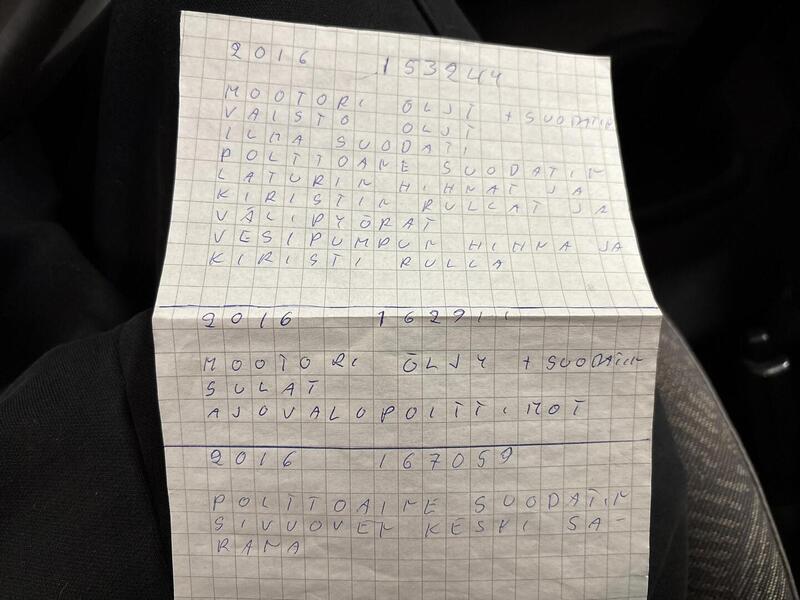 2016 153244
MOOTORI ÖLJT + SUODATIN
VAISTO ÖLJT
ILMA SUODATI
POLTTOANE SUODATIN
LATURIN HIHNAT JA
KIRISTIN RULLAT JA
VÄLIPYÖRAT
VESIPUMPUN HIHNA JA
KIRISTI RULLA
2016 162911
MOOTORI ÖLJY + SUODATIN
SULAT
AJOVALO POLTTIMOT
2016 167059
POLTTOAINE SUODATIN
SIVUOVEN KESKI SA-
RANA